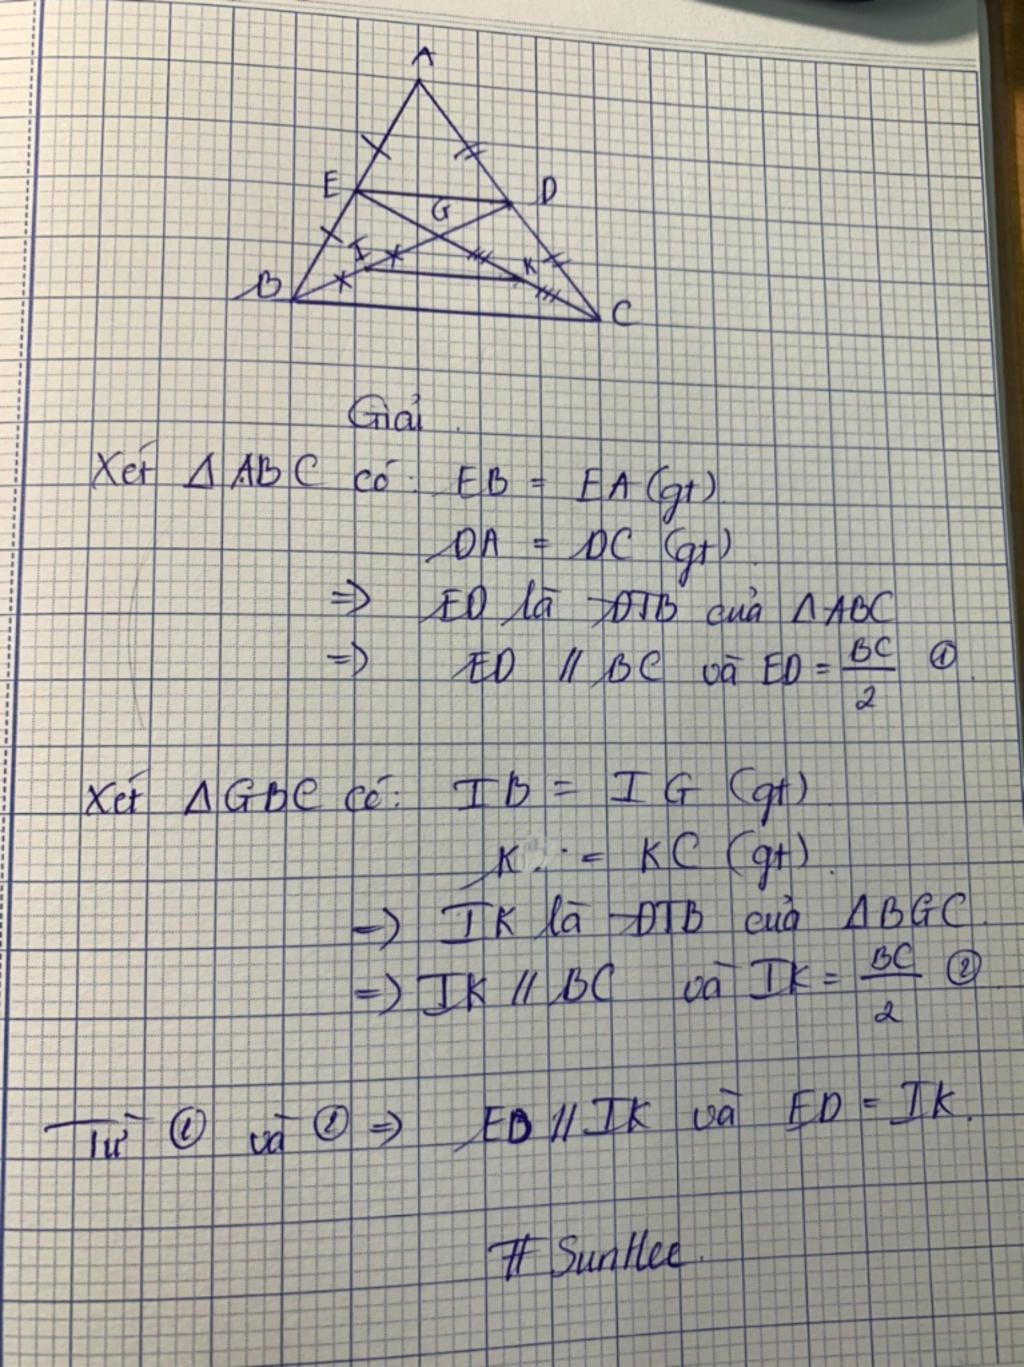 A
E
D
G
I
K
B
C
Giải.
Xét ΔABC có: EB = EA (gt)
DA = DC (gt).
=> ED là ĐTB của ΔABC
=> ED // BC và ED = BC/2 ①.
Xét ΔGBC có: IB = IG (gt).
K = KC (gt).
=> IK là ĐTB của ΔBGC.
=> IK // BC và IK = BC/2 ②
Từ ① và ② => ED // IK và ED = IK.
# SunHee.